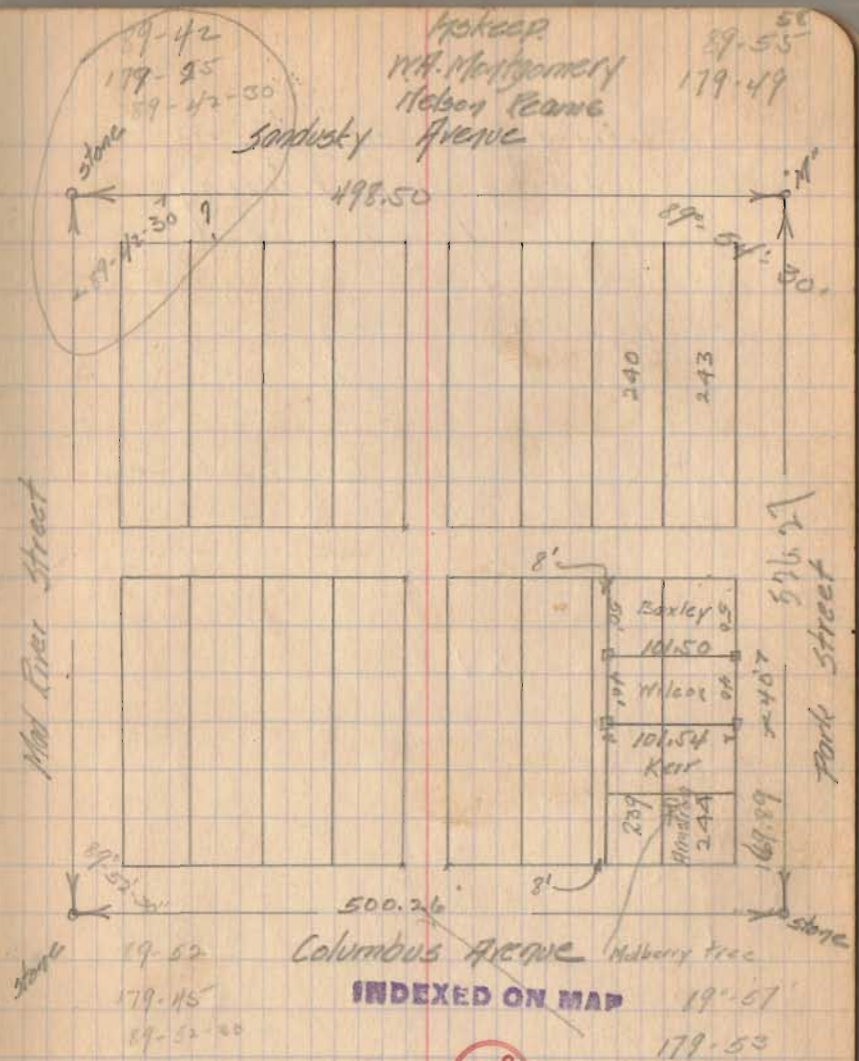 58
89-42
179-25
89-42-30
W.A. Montgomery
Nelson
89-55
179-49
Sandusky Avenue
stone
498.50
"M"
89-42-30
?
89°-54'-30"
240
243
Mad River Street
576.27
Park Street
8'
50'
Baxley
50
101.50
40'
Wilcox
40
40'?
101.54
Kerr
239
Armstrong
244
169.89
8'
89°-52'-30"
500.26
stone
stone
Columbus Avenue
Mulberry Tree
89-52
179-45
89-52-30
INDEXED ON MAP
89°-57'
179-53